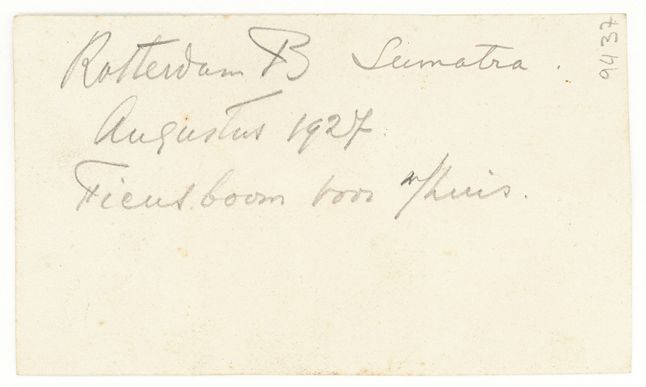 Rotterdam B Sumatra.
Augustus 1927
Ficusboom voor 't huis.
9437